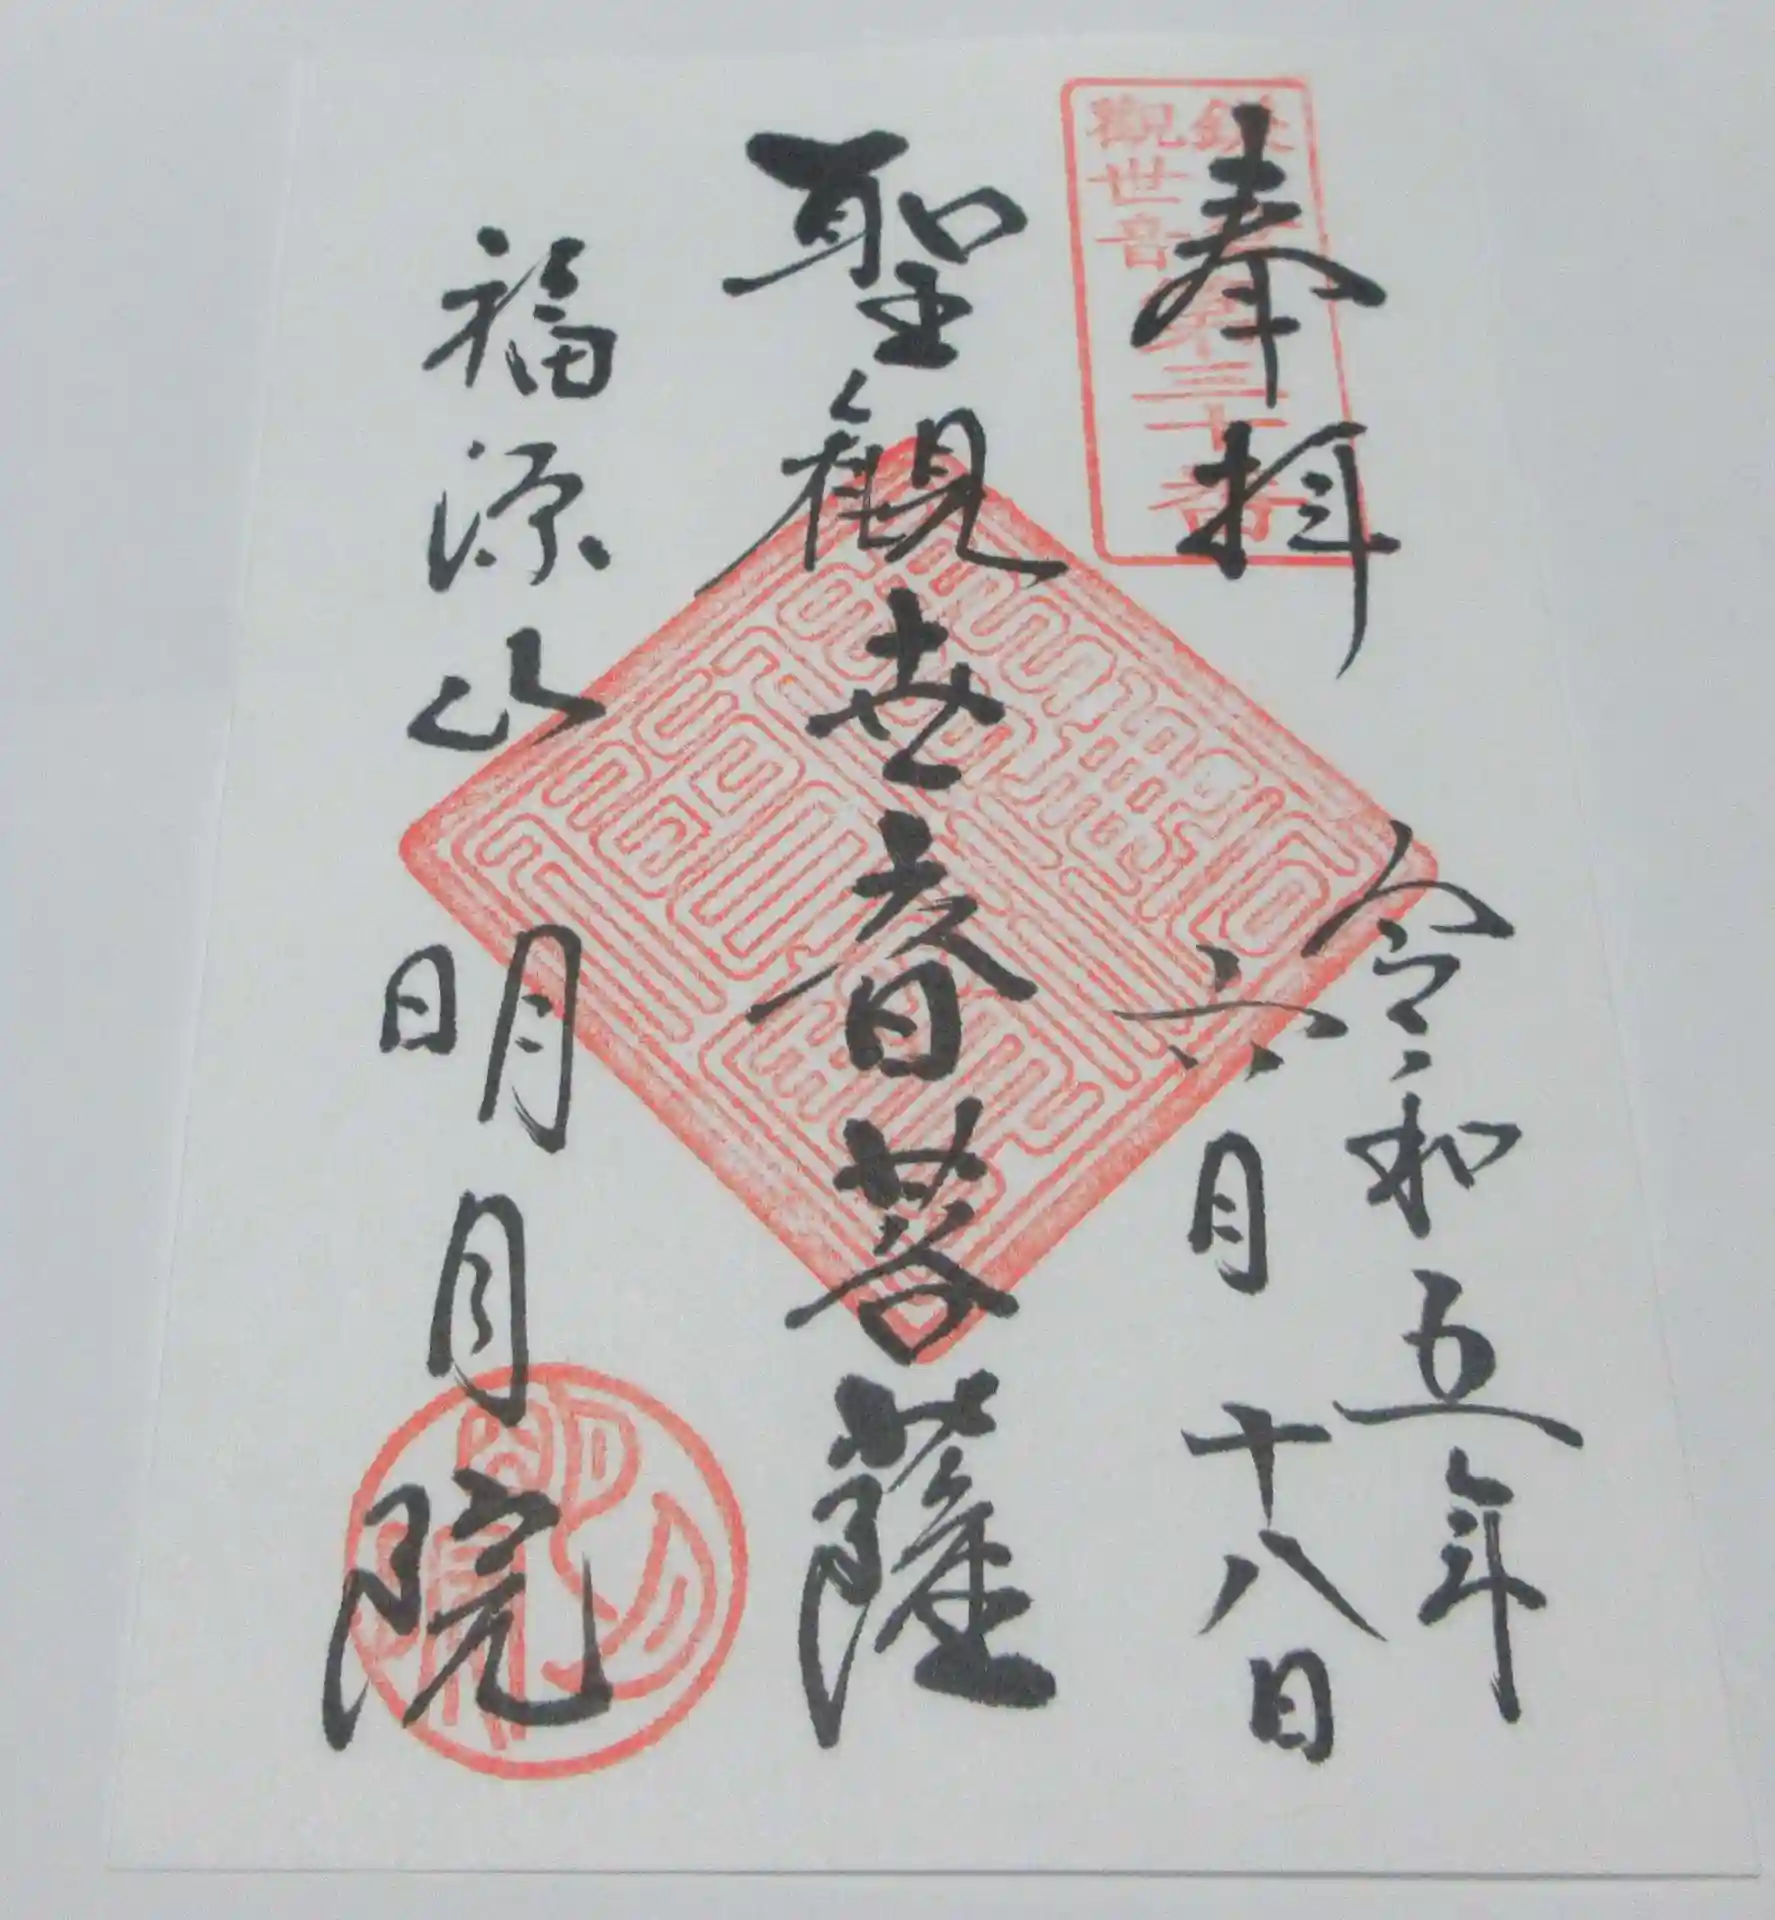 奉拝
鎌倉
観世音
第三十番
令和五年
六月十八日
聖観世音菩薩
福源山
明月院